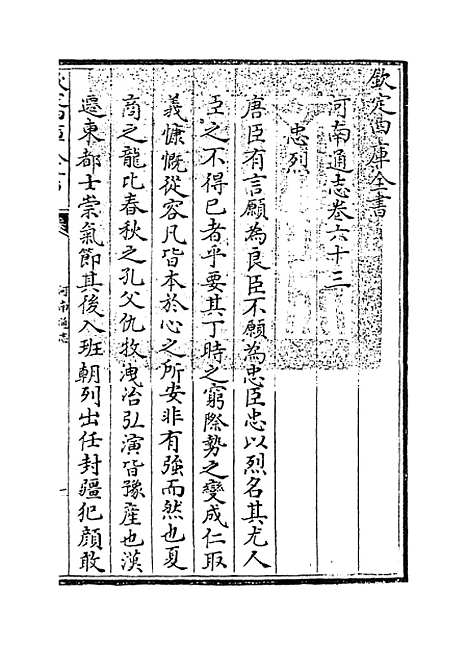 欽定四庫全書
河南通志卷六十三
忠烈
唐臣有言願為良臣不願為忠臣忠以烈名其尤人
臣之不得已者乎要其丁時之窮際勢之變成仁取
義慷慨從容凡皆本於心之所安非有強而然也夏
商之龍比春秋之孔父仇牧洩冶弘演皆豫産也漢
遷東都士崇氣節其後入班朝列出任封疆犯顔敢
河南通志
一